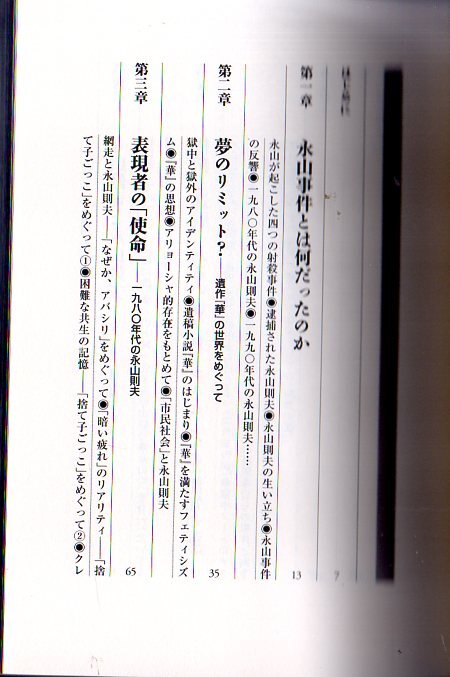 はじめに
9
第一章　永山事件とは何だったのか
13
永山が起こした四つの射殺事件●逮捕された永山則夫●永山則夫の生い立ち●永山事件
の反響●一九八〇年代の永山則夫●一九九〇年代の永山則夫……
第二章　夢のリミット?——遺作『華』の世界をめぐって
35
獄中と獄外のアイデンティティ●遺稿小説『華』のはじまり●『華』を満たすフェティシズ
ム●『華』の思想●アリョーシャ的存在をもとめて●「市民社会」と永山則夫
第三章　表現者の「使命」——一九八〇年代の永山則夫
65
網走と永山則夫——「なぜか、アバシリ」をめぐって●「暗い疲れ」のリアリティ——「捨
て子ごっこ」をめぐって①●困難な共生の記憶——「捨て子ごっこ」をめぐって②●クレ